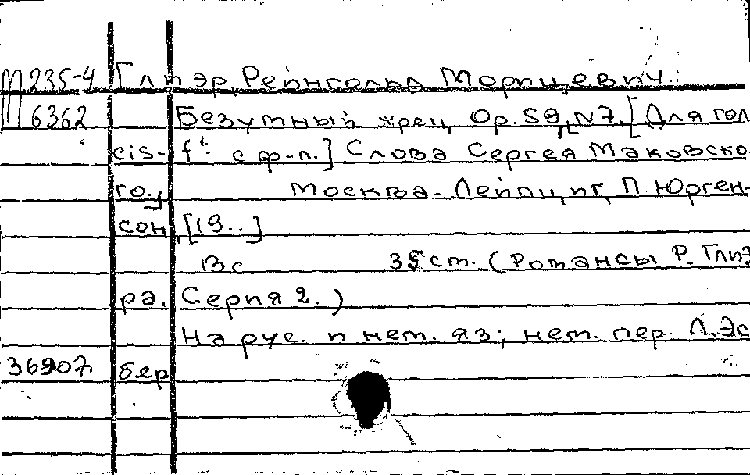 М235-4 Глиэр, Рейнгольд Морицевич.
6362 Безумный жрец, Op. 59, N7. [Для гол.
cis-f² с ф-п.] Слова Сергея Маковско-
го.
Москва-Лейпциг, П. Юрген-
сон, [19..]
13 с 35 ст. (Романсы Р. Глиэ-
ра. Серия 2.)
На рус. и нем. яз; нем. пер. Л. Эс-
36907 бер